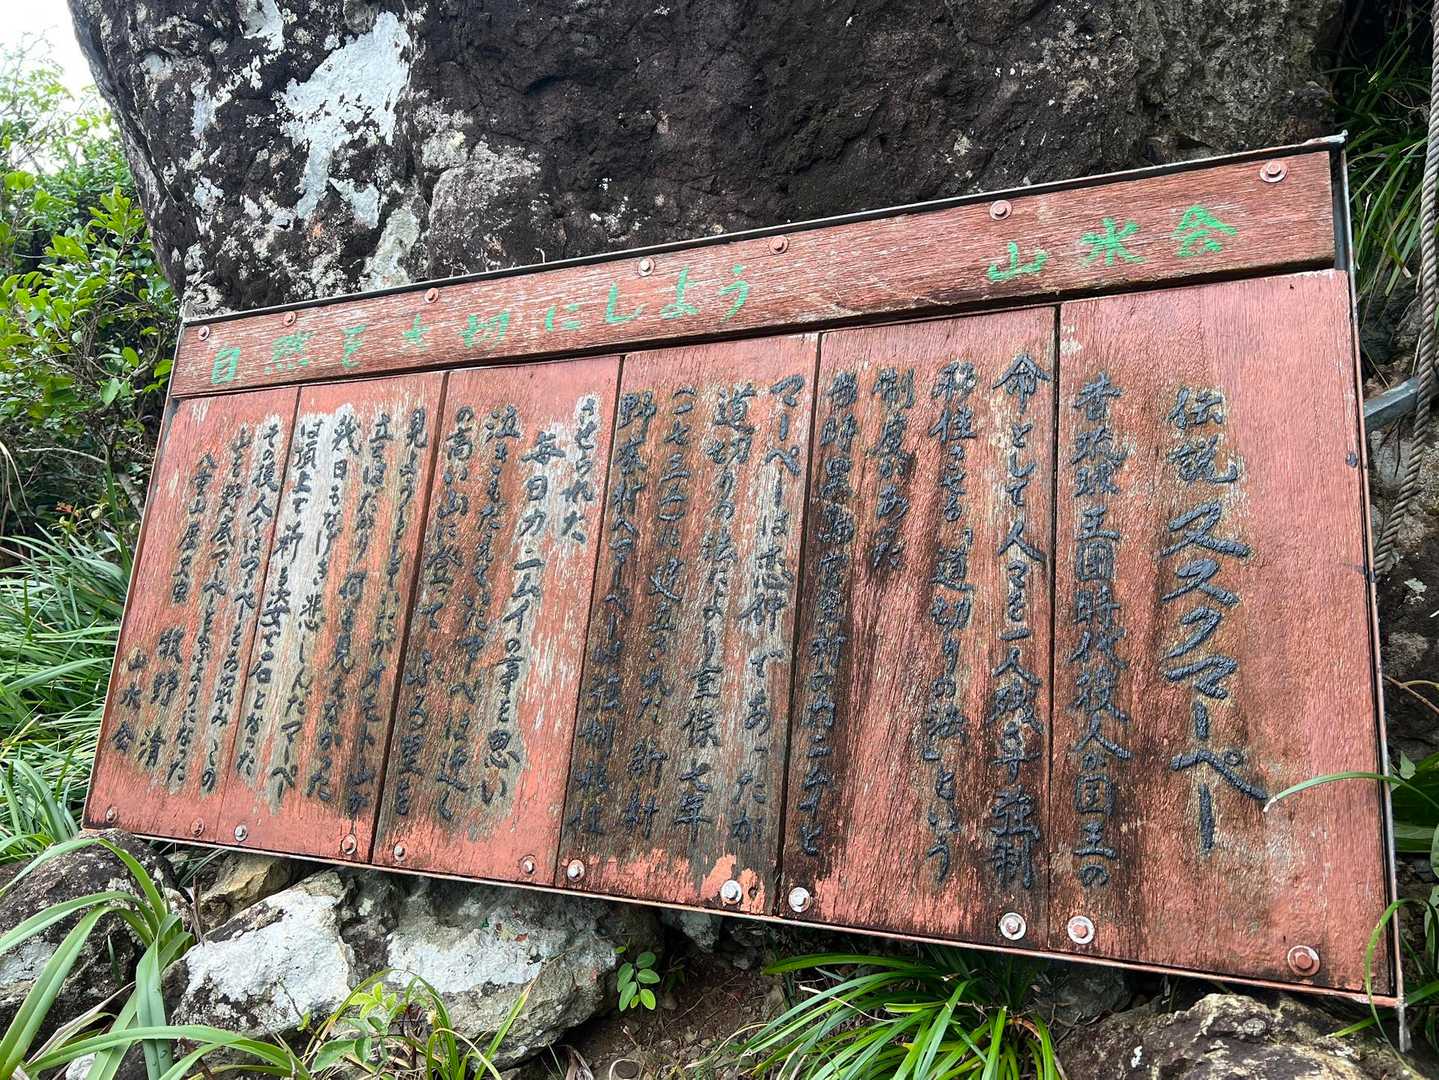 自然を大切にしよう 山水会
伝説 ススクマーペー
昔琉球王国時代役人が国王の
命として人々を一人残らず強制
移住させる「道切りの法」という
制度があった
当時黒島宮里村のカニムイと
マーペーは恋仲であったが
道切りの法により享保七年
(一七三二)に建立された新村
野底村へマーペーは強制移住
させられた
毎日カニムイの事を思い
泣きもだえていたマーペーは近く
の高い山に登って ふる里を
見ようとしていたがオモト山が
立ちはだかり何も見えなかった
我日もなげき悲しんだマーペー
は頂上で祈る姿で石となった
その後人々はマーペーをあわれみこの
山を野底マーペーとよぶようになった
八重山農高 牧野 清
山水会